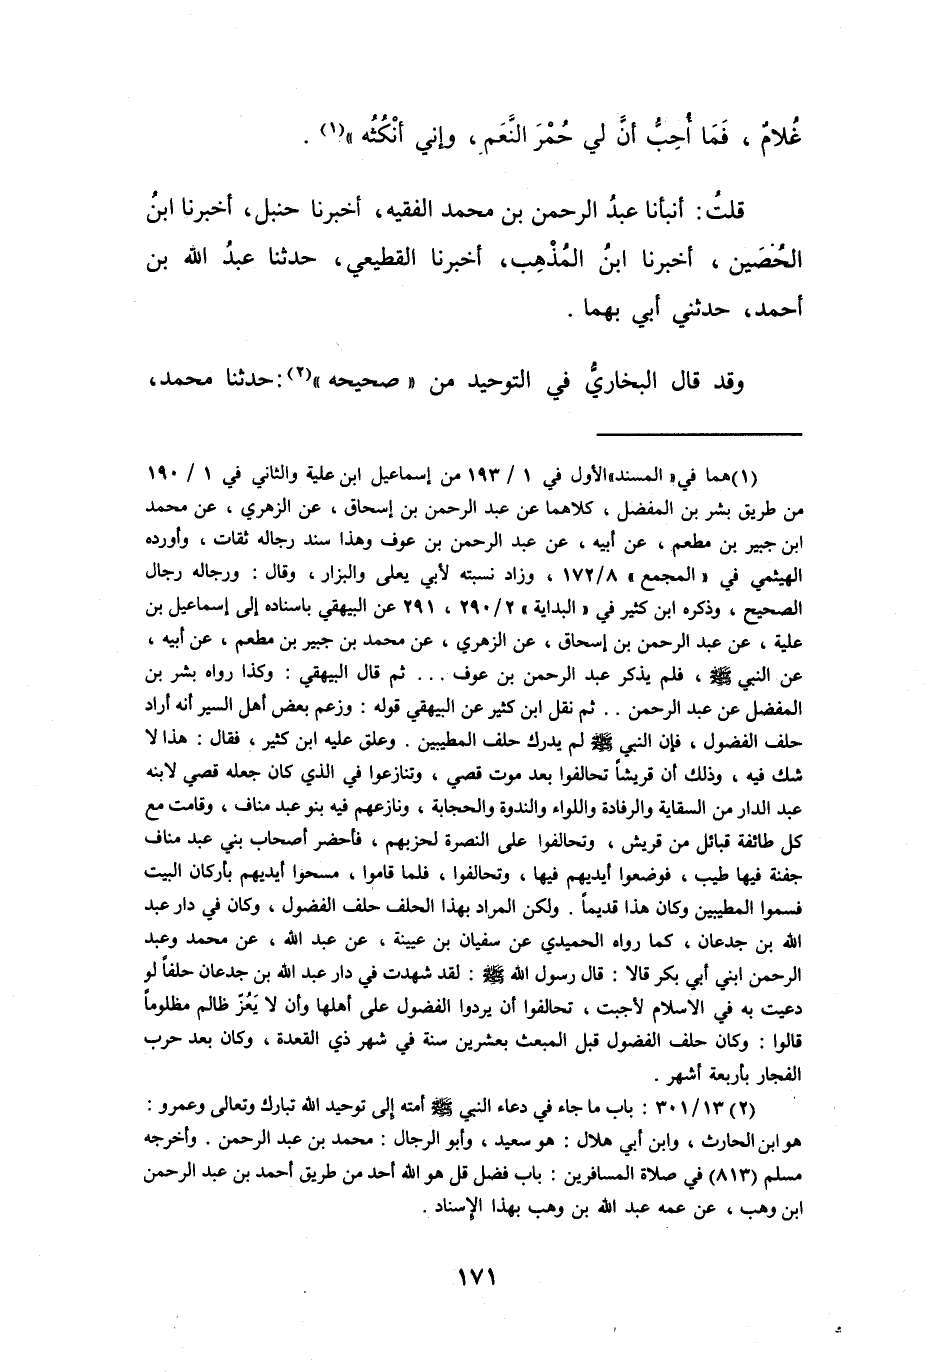 غُلامٌ ، فَمَا أُحِبُّ أنَّ لي حُمْرَ النَّعَمِ ، وإني أنْكُثُه »(١) .
قلتُ: أنبأنا عبدُ الرحمن بن محمد الفقيه، أخبرنا حنبل، أخبرنا ابنُ
الحُصَين ، أخبرنا ابنُ المُذْهِب، أخبرنا القطيعي، حدثنا عبدُ الله بن
أحمد، حدثني أبي بهما .
وقد قال البخاريُّ في التوحيد من « صحيحه »(٢):حدثنا محمد،
(١)هما في« المسند»الأول في ١ / ١٩٣ من إسماعيل ابن علية والثاني في ١ / ١٩٠
من طريق بشر بن المفضل ، كلاهما عن عبد الرحمن بن إسحاق ، عن الزهري ، عن محمد
ابن جبير بن مطعم ، عن أبيه ، عن عبد الرحمن بن عوف وهذا سند رجاله ثقات ، وأورده
الهيثمي في « المجمع » ١٧٢/٨ ، وزاد نسبته لأبي يعلى والبزار ، وقال : ورجاله رجال
الصحيح ، وذكره ابن كثير في « البداية » ٢٩٠/٢ ، ٢٩١ عن البيهقي باسناده إلى إسماعيل بن
علية ، عن عبد الرحمن بن إسحاق ، عن الزهري ، عن محمد بن جبير بن مطعم ، عن أبيه ،
عن النبي ﷺ ، فلم يذكر عبد الرحمن بن عوف ... ثم قال البيهقي : وكذا رواه بشر بن
المفضل عن عبد الرحمن .. ثم نقل ابن كثير عن البيهقي قوله : وزعم بعض أهل السير أنه أراد
حلف الفضول ، فإن النبي ﷺ لم يدرك حلف المطيبين . وعلق عليه ابن كثير ، فقال : هذا لا
شك فيه ، وذلك أن قريشاً تحالفوا بعد موت قصي ، وتنازعوا في الذي كان جعله قصي لابنه
عبد الدار من السقاية والرفادة واللواء والندوة والحجابة ، ونازعهم فيه بنو عبد مناف ، وقامت مع
كل طائفة قبائل من قريش ، وتحالفوا على النصرة لحزبهم ، فأحضر أصحاب بني عبد مناف
جفنة فيها طيب ، فوضعوا أيديهم فيها ، وتحالفوا ، فلما قاموا ، مسحوا أيديهم بأركان البيت
فسموا المطيبين وكان هذا قديماً . ولكن المراد بهذا الحلف حلف الفضول ، وكان في دار عبد
الله بن جدعان ، كما رواه الحميدي عن سفيان بن عيينة ، عن عبد الله ، عن محمد وعبد
الرحمن ابني أبي بكر قالا : قال رسول الله ﷺ : لقد شهدت في دار عبد الله بن جدعان حلفاً لو
دعيت به في الاسلام لأجبت ، تحالفوا أن يردوا الفضول على أهلها وأن لا يَعُزّ ظالم مظلوماً
قالوا : وكان حلف الفضول قبل المبعث بعشرين سنة في شهر ذي القعدة ، وكان بعد حرب
الفجار بأربعة أشهر .
(٢) ٣٠١/١٣ : باب ما جاء في دعاء النبي ﷺ أمته إلى توحيد الله تبارك وتعالى وعمرو :
هو ابن الحارث ، وابن أبي هلال : هو سعيد ، وأبو الرجال : محمد بن عبد الرحمن . وأخرجه
مسلم (٨١٣) في صلاة المسافرين : باب فضل قل هو الله أحد من طريق أحمد بن عبد الرحمن
ابن وهب ، عن عمه عبد الله بن وهب بهذا الإسناد .
١٧١